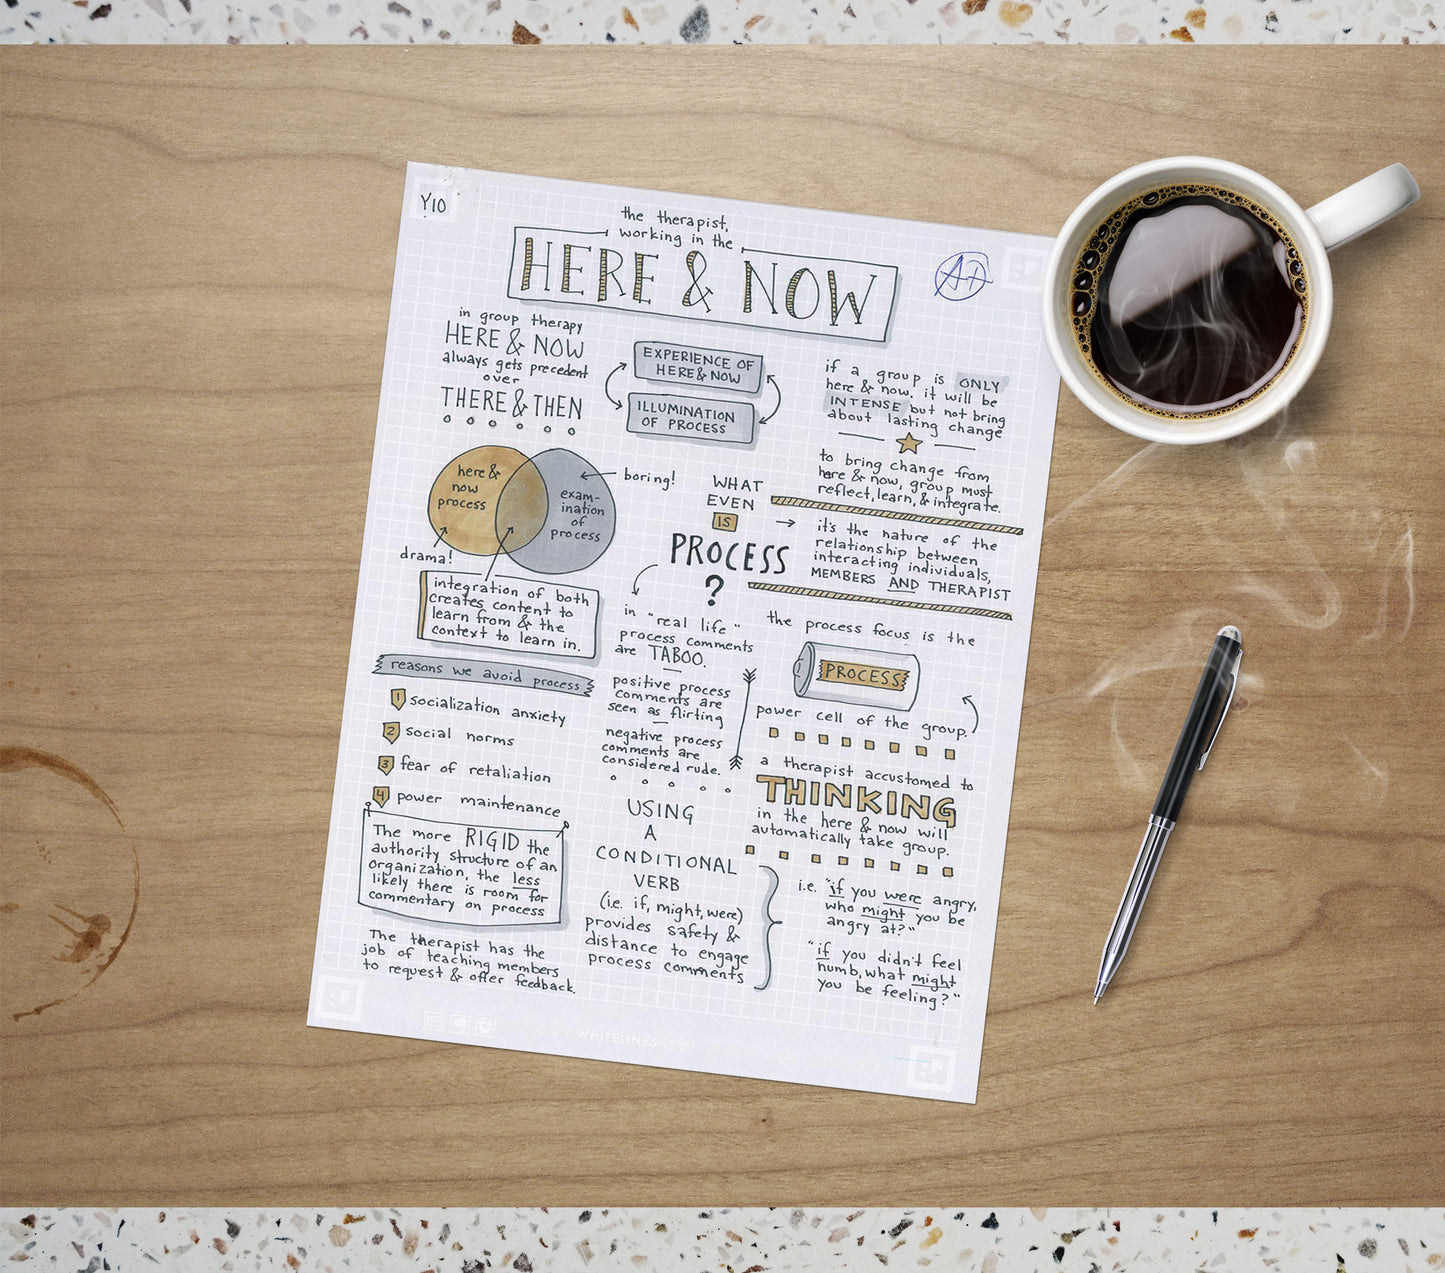 Y10
the therapist,
working in the
HERE & NOW
in group therapy
HERE & NOW
always gets precedent
over
THERE & THEN
EXPERIENCE OF
HERE & NOW
ILLUMINATION
OF PROCESS
if a group is ONLY
here & now, it will be
INTENSE but not bring
about lasting change
to bring change from
here & now, group must
reflect, learn, & integrate.
here &
now
process
exam-
ination
of
process
boring!
drama!
integration of both
creates content to
learn from & the
context to learn in.
WHAT
EVEN
IS
PROCESS
?
it's the nature of the
relationship between
interacting individuals,
MEMBERS AND THERAPIST
reasons we avoid process
1 socialization anxiety
2 social norms
3 fear of retaliation
4 power maintenance
The more RIGID the
authority structure of an
organization, the less
likely there is room for
commentary on process
The therapist has the
job of teaching members
to request & offer feedback.
in "real life"
process comments
are TABOO.
positive process
comments are
seen as flirting
negative process
comments are
considered rude.
the process focus is the
PROCESS
power cell of the group.
a therapist accustomed to
THINKING
in the here & now will
automatically take group.
USING
A
CONDITIONAL
VERB
(i.e. if, might, were)
provides safety &
distance to engage
process comments
i.e. "if you were angry,
who might you be
angry at?"
"if you didn't feel
numb, what might
you be feeling?"
WHITELINES